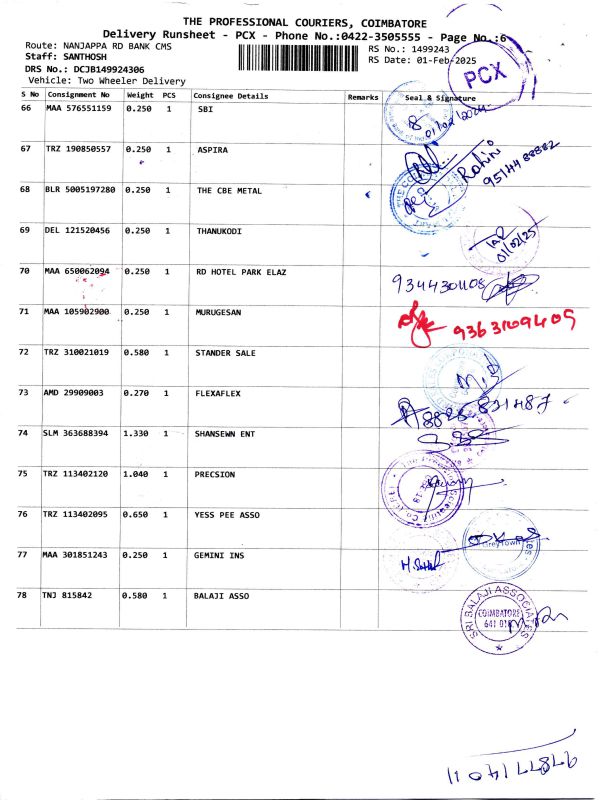 THE PROFESSIONAL COURIERS, COIMBATORE
Delivery Runsheet - PCX - Phone No.:0422-3505555 - Page No.:6
Route: NANJAPPA RD BANK CMS
RS No.: 1499243
Staff: SANTHOSH
RS Date: 01-Feb-2025
DRS No.: DCJB149924306
Vehicle: Two Wheeler Delivery
PCX
S No Consignment No Weight PCS Consignee Details Remarks Seal & Signature
66 MAA 576551159 0.250 1 SBI
67 TRZ 190850557 0.250 1 ASPIRA
Rohini
9514488882
68 BLR 5005197280 0.250 1 THE CBE METAL
69 DEL 121520456 0.250 1 THANUKODI
01/02/25
70 MAA 650062094 0.250 1 RD HOTEL PARK ELAZ
9344301108
71 MAA 105902900 0.250 1 MURUGESAN
9363109409
72 TRZ 310021019 0.580 1 STANDER SALE
73 AMD 29909003 0.270 1 FLEXAFLEX
74 SLM 363688394 1.330 1 SHANSEWN ENT
75 TRZ 113402120 1.040 1 PRECSION
76 TRZ 113402095 0.650 1 YESS PEE ASSO
77 MAA 301851243 0.250 1 GEMINI INS
78 TNJ 815842 0.580 1 BALAJI ASSO
SRI BALAJI ASSOCIATES
COIMBATORE
641 018